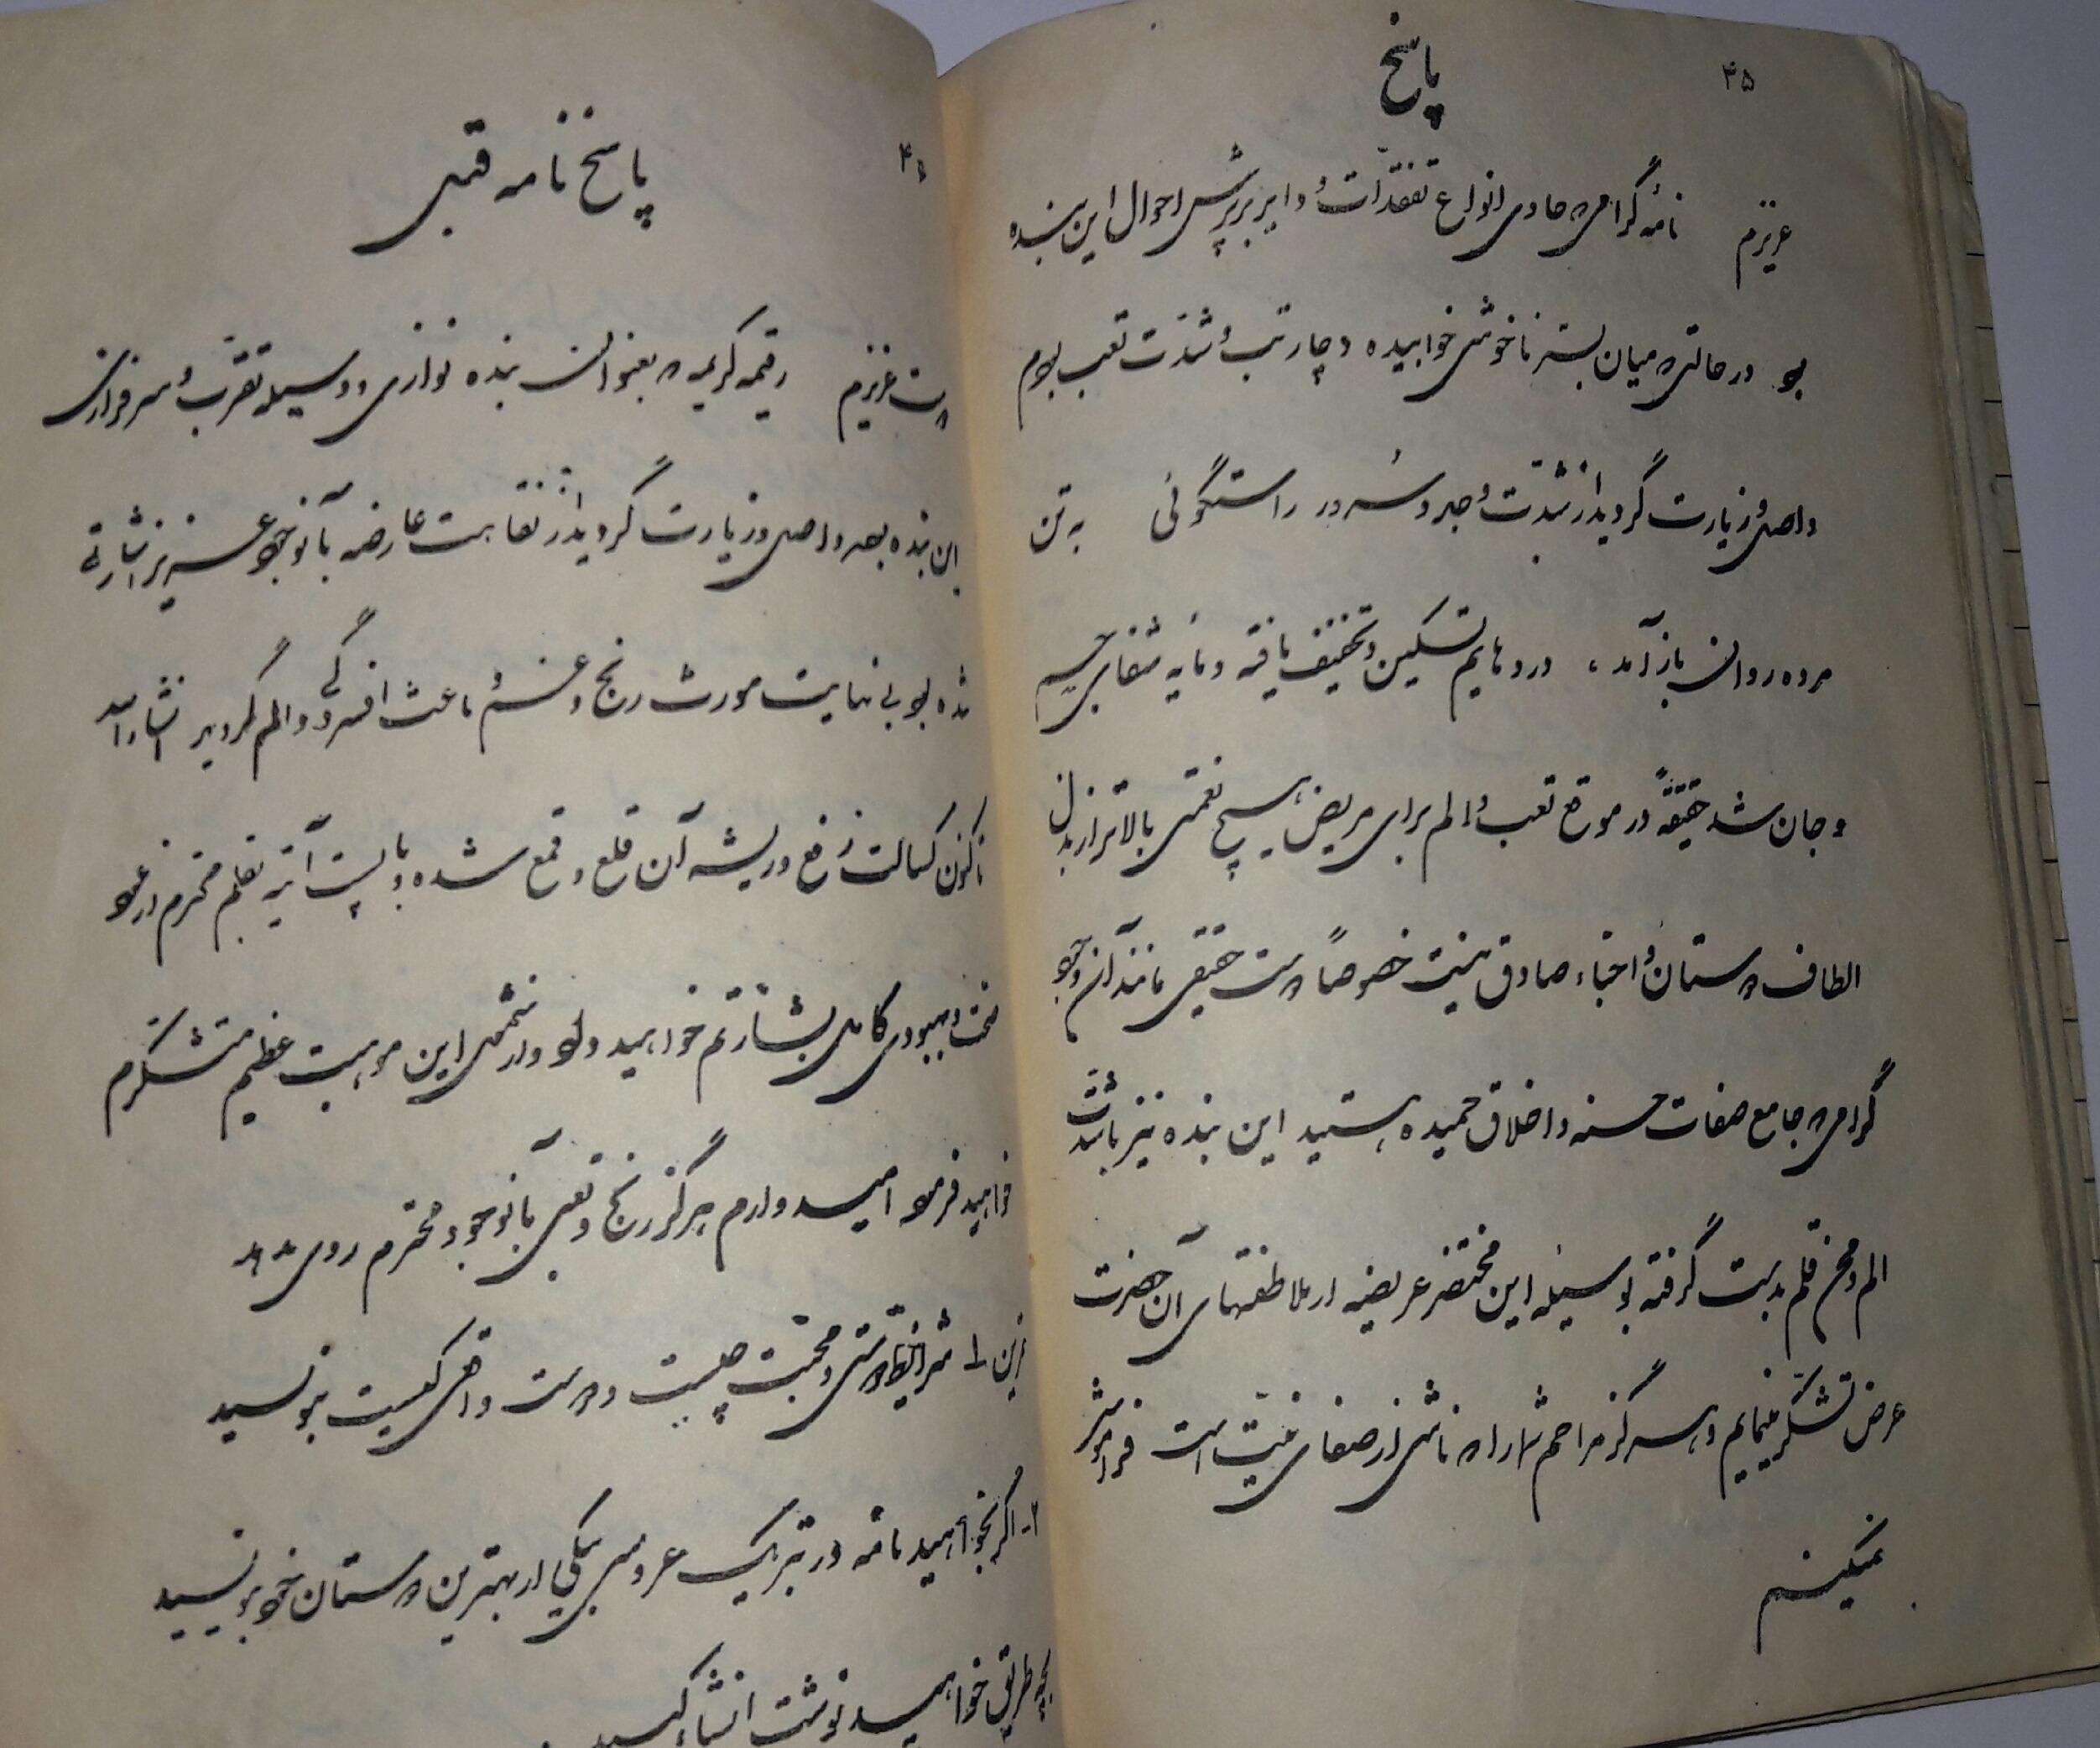 ۴۵
پاسخ
عزیزم نامهٔ گرامی که حاوی انواع تفقدات و دایر بر پرسش احوال این بنده
بود در حالتی که میان بستر ناخوشی خوابیده دچار تب و شدّت تعب بودم
واصل و زیارت گردید از شدّت وجد و سُرور راستگوئی به تن
مرده روان باز آمد، دردهایم تسکین و تخفیف یافته و مایه شفای جسم
و جان شد حقیقةً در موقع تعب و الم برای مریض هیچ نعمتی بالاتر از بذل
الطاف دوستان و احبّاء صادق نیست خصوصاً دوست حقیقی مانند آن وجود
گرامی که جامع صفات حسنه و اخلاق حمیده هستید این بنده نیز با شدّت
الم و محن قلم بدست گرفته بوسیله این مختصر عریضه از ملاطفتهای آن حضرت
عرض تشکّر مینمایم و هرگز مراحم شما را که ناشی از صفای نیّت است فراموش
نمیکنم
پاسخ نامه قبلی
دوست عزیزم رقیمه کریمه که بعنوان بنده نوازی و وسیله تقرّب و سرفرازی
این بنده بود واصل و زیارت گردید از نقاهت عارضه بآنوجود عزیز اشارتی
شده بود بی نهایت مورث رنج و غم و باعث افسردگی و الم گردید انشاءالله
تاکنون کسالت رفع و ریشه آن قلع و قمع شده و با پست آتیه بقلم محترم در عود
صحت و بهبودی کامل بشارتم خواهید داد و از شمول این موهبت عظیم متشکرم
خواهید فرمود امیدوارم هرگز رنج و تعبی بآنوجود محترم روی ندهد
تمرین ۱ـ شرایط دوستی و محبّت چیست و دوست واقعی کیست بنویسید
۲ـ اگر بخواهید نامه در تبریک عروسی یکی از بهترین دوستان خود بنویسید
بچه طریق خواهید نوشت انشاء کنید